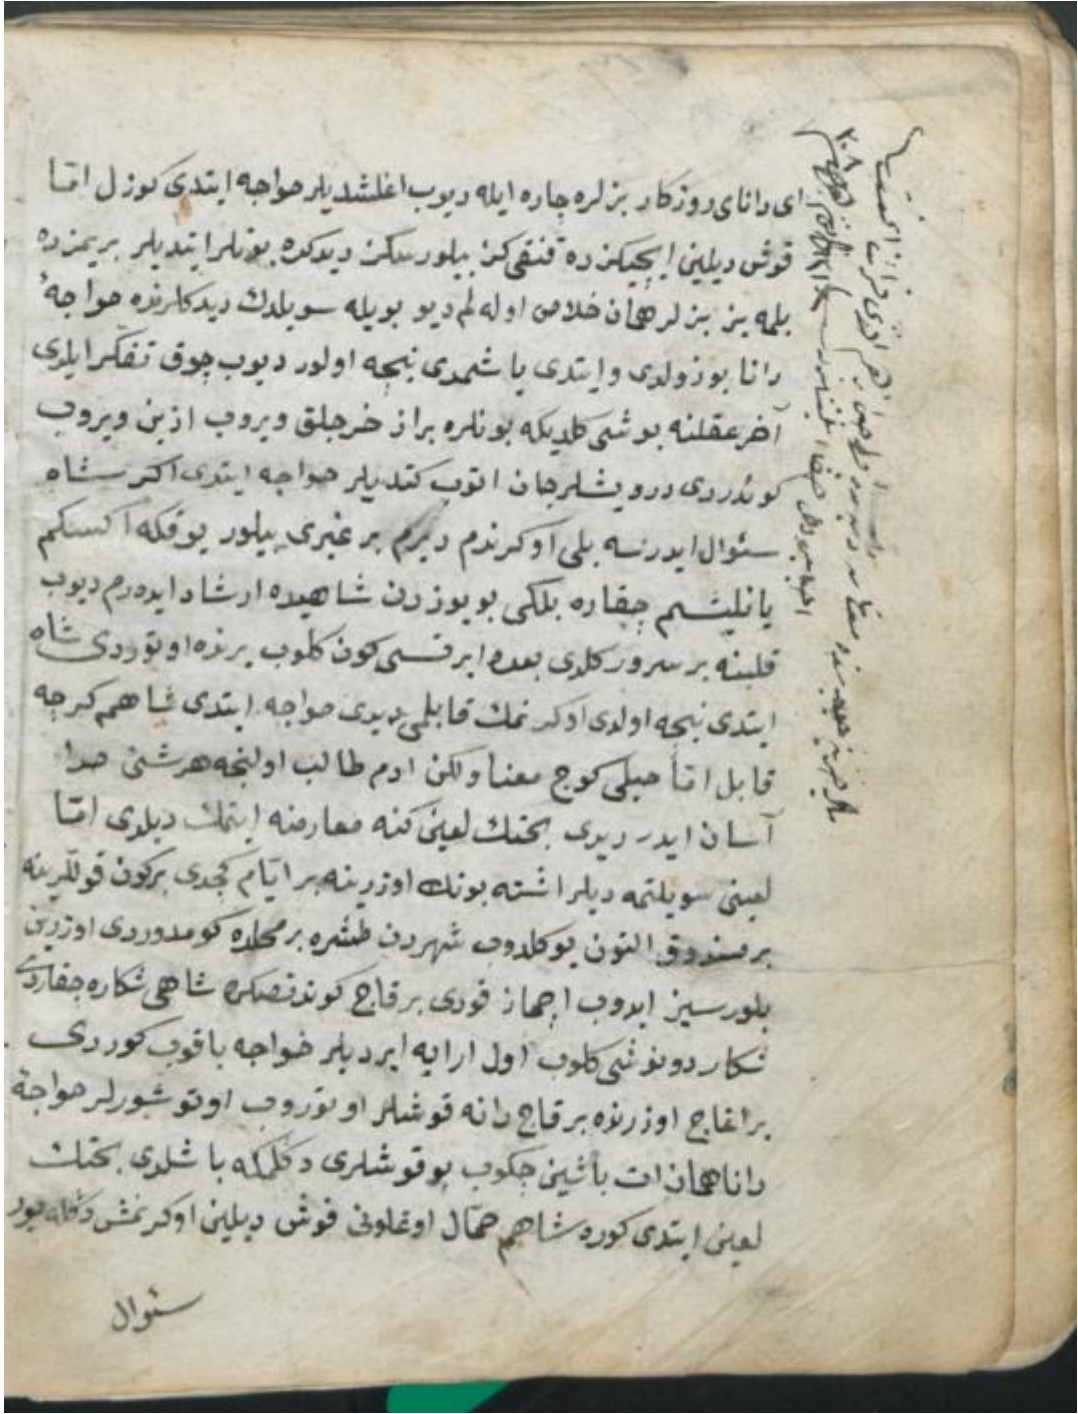 ای دانای روزكار بزلره چاره ایله دیوب اغلشدیلر خواجه ایتدی كوزل امّا
قوش دیلین ایچیكزده قنقی كز بیلورسكز دیدكده بونلر ایتدیلر بریمزده
بلمه یز بزلر همان خلاص اوله لم دیو بویله سویلدك دیدكلرنده خواجهٔ
دانا بوزولدی وایتدی یا شمدی نیجه اولور دیوب چوق تفكّر ایلدی
آخر عقلنه بو شی كلدیكه بونلره براز خرجلق ویروب اذین ویروب
كوندردی درویشلر جان اتوب كتدیلر خواجه ایتدی اكر شاه
سئوال ایدرسه بلی اوكرندم دیرم بر غیری بیلور یوقكه اكسكم
یا نلیشم چقاره بلكی بو یوزدن شاهیده ارشاد ایده رم دیوب
قلبنه بر سرور كلدی بعده ایرتسی كون كلوب یرنده اوتوردی شاه
ایتدی نیجه اولدی اوكرنمك قابلمی دیدی خواجه ایتدی شاهم كرچه
قابل امّا خیلی كوج معنا ولكن ادم طالب اولنجه هر شیی خدا
آسان ایدر دیدی بختك لعین كنه معارضه ایتمك دیلدی امّا
لعینی سویلتمه دیلر اشته بونك اوزرینه بر ایّام كچدی بركون قوللرینه
بر صندوق التون یوكلدوب شهردن طشره بر محلده كومدوردی اوزرین
بلورسیز ایدوب اچماز قودی بر قاچ كوندنصكره شاهی شكاره چقاردی
شكار دونوشی كلوب اول ارایه ایردیلر خواجه باقوب كوردی
بر اغاج اوزرنده بر قاچ دانه قوشلر اوتوروب اوتوشورلر خواجهٔ
دانا همان ات باشین چكوب بو قوشلری دكلمكه باشلدی بختك
لعین ایتدی كوره شاهم حمّال اوغلونی قوش دیلین اوكرنمش دكله یور
سئوال